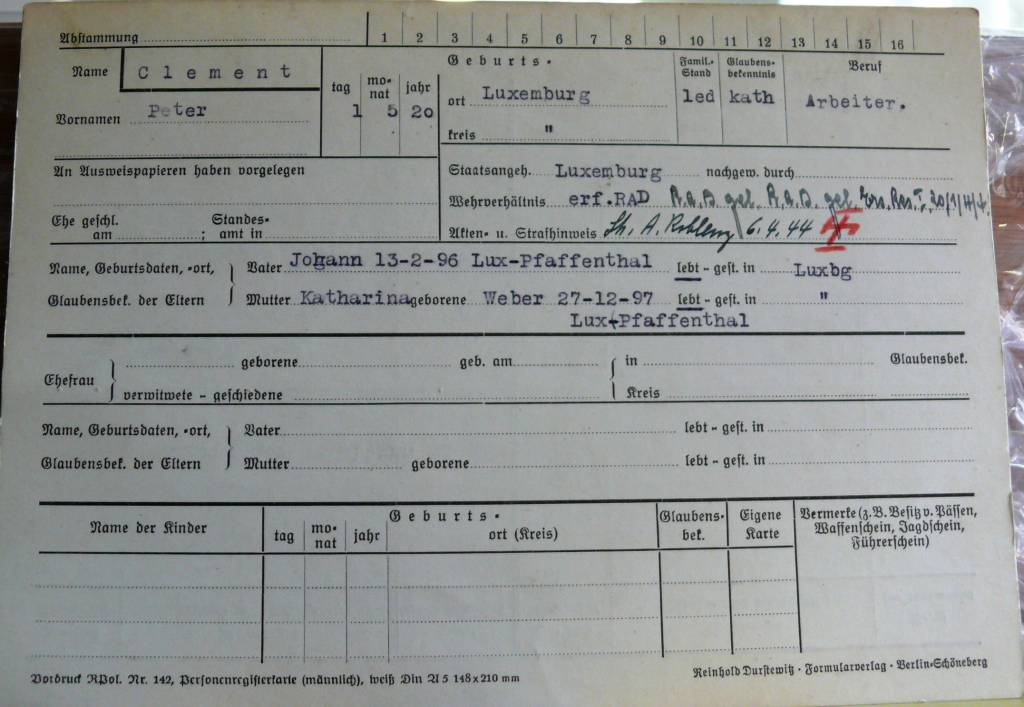 Abstammung 1 2 3 4 5 6 7 8 9 10 11 12 13 14 15 16
Name Clement
Vornamen Peter
tag monat jahr
1 5 20
Geburts-
ort Luxemburg
kreis "
Famil.-Stand
led
Glaubens-bekenntnis
kath
Beruf
Arbeiter.
An Ausweispapieren haben vorgelegen
Ehe geschl. Standes-
am ; amt in
Staatsangeh. Luxemburg nachgew. durch
Wehrverhältnis erf.RAD R.a.D. gel. R.a.D. gel. Ers. Res. I,
Akten- u. Strafhinweis A. 6.4.44
Name, Geburtsdaten, -ort, Vater Johann 13-2-96 Lux-Pfaffenthal lebt - gest. in Luxbg
Glaubensbek. der Eltern Mutter Katharina geborene Weber 27-12-97 lebt - gest. in "
Lux-Pfaffenthal
Ehefrau geborene geb. am in Glaubensbek.
verwitwete - geschiedene Kreis
Name, Geburtsdaten, -ort, Vater lebt - gest. in
Glaubensbek. der Eltern Mutter geborene lebt - gest. in
Name der Kinder
Geburts-
tag mo-nat jahr ort (Kreis)
Glaubens-bek.
Eigene Karte
Vermerke (z.B. Besitz v. Pässen,
Waffenschein, Jagdschein,
Führerschein)
Vordruck RPol. Nr. 142, Personenregisterkarte (männlich), weiß Din A 5 148x210 mm
Reinhold Durstewitz · Formularverlag · Berlin-Schöneberg